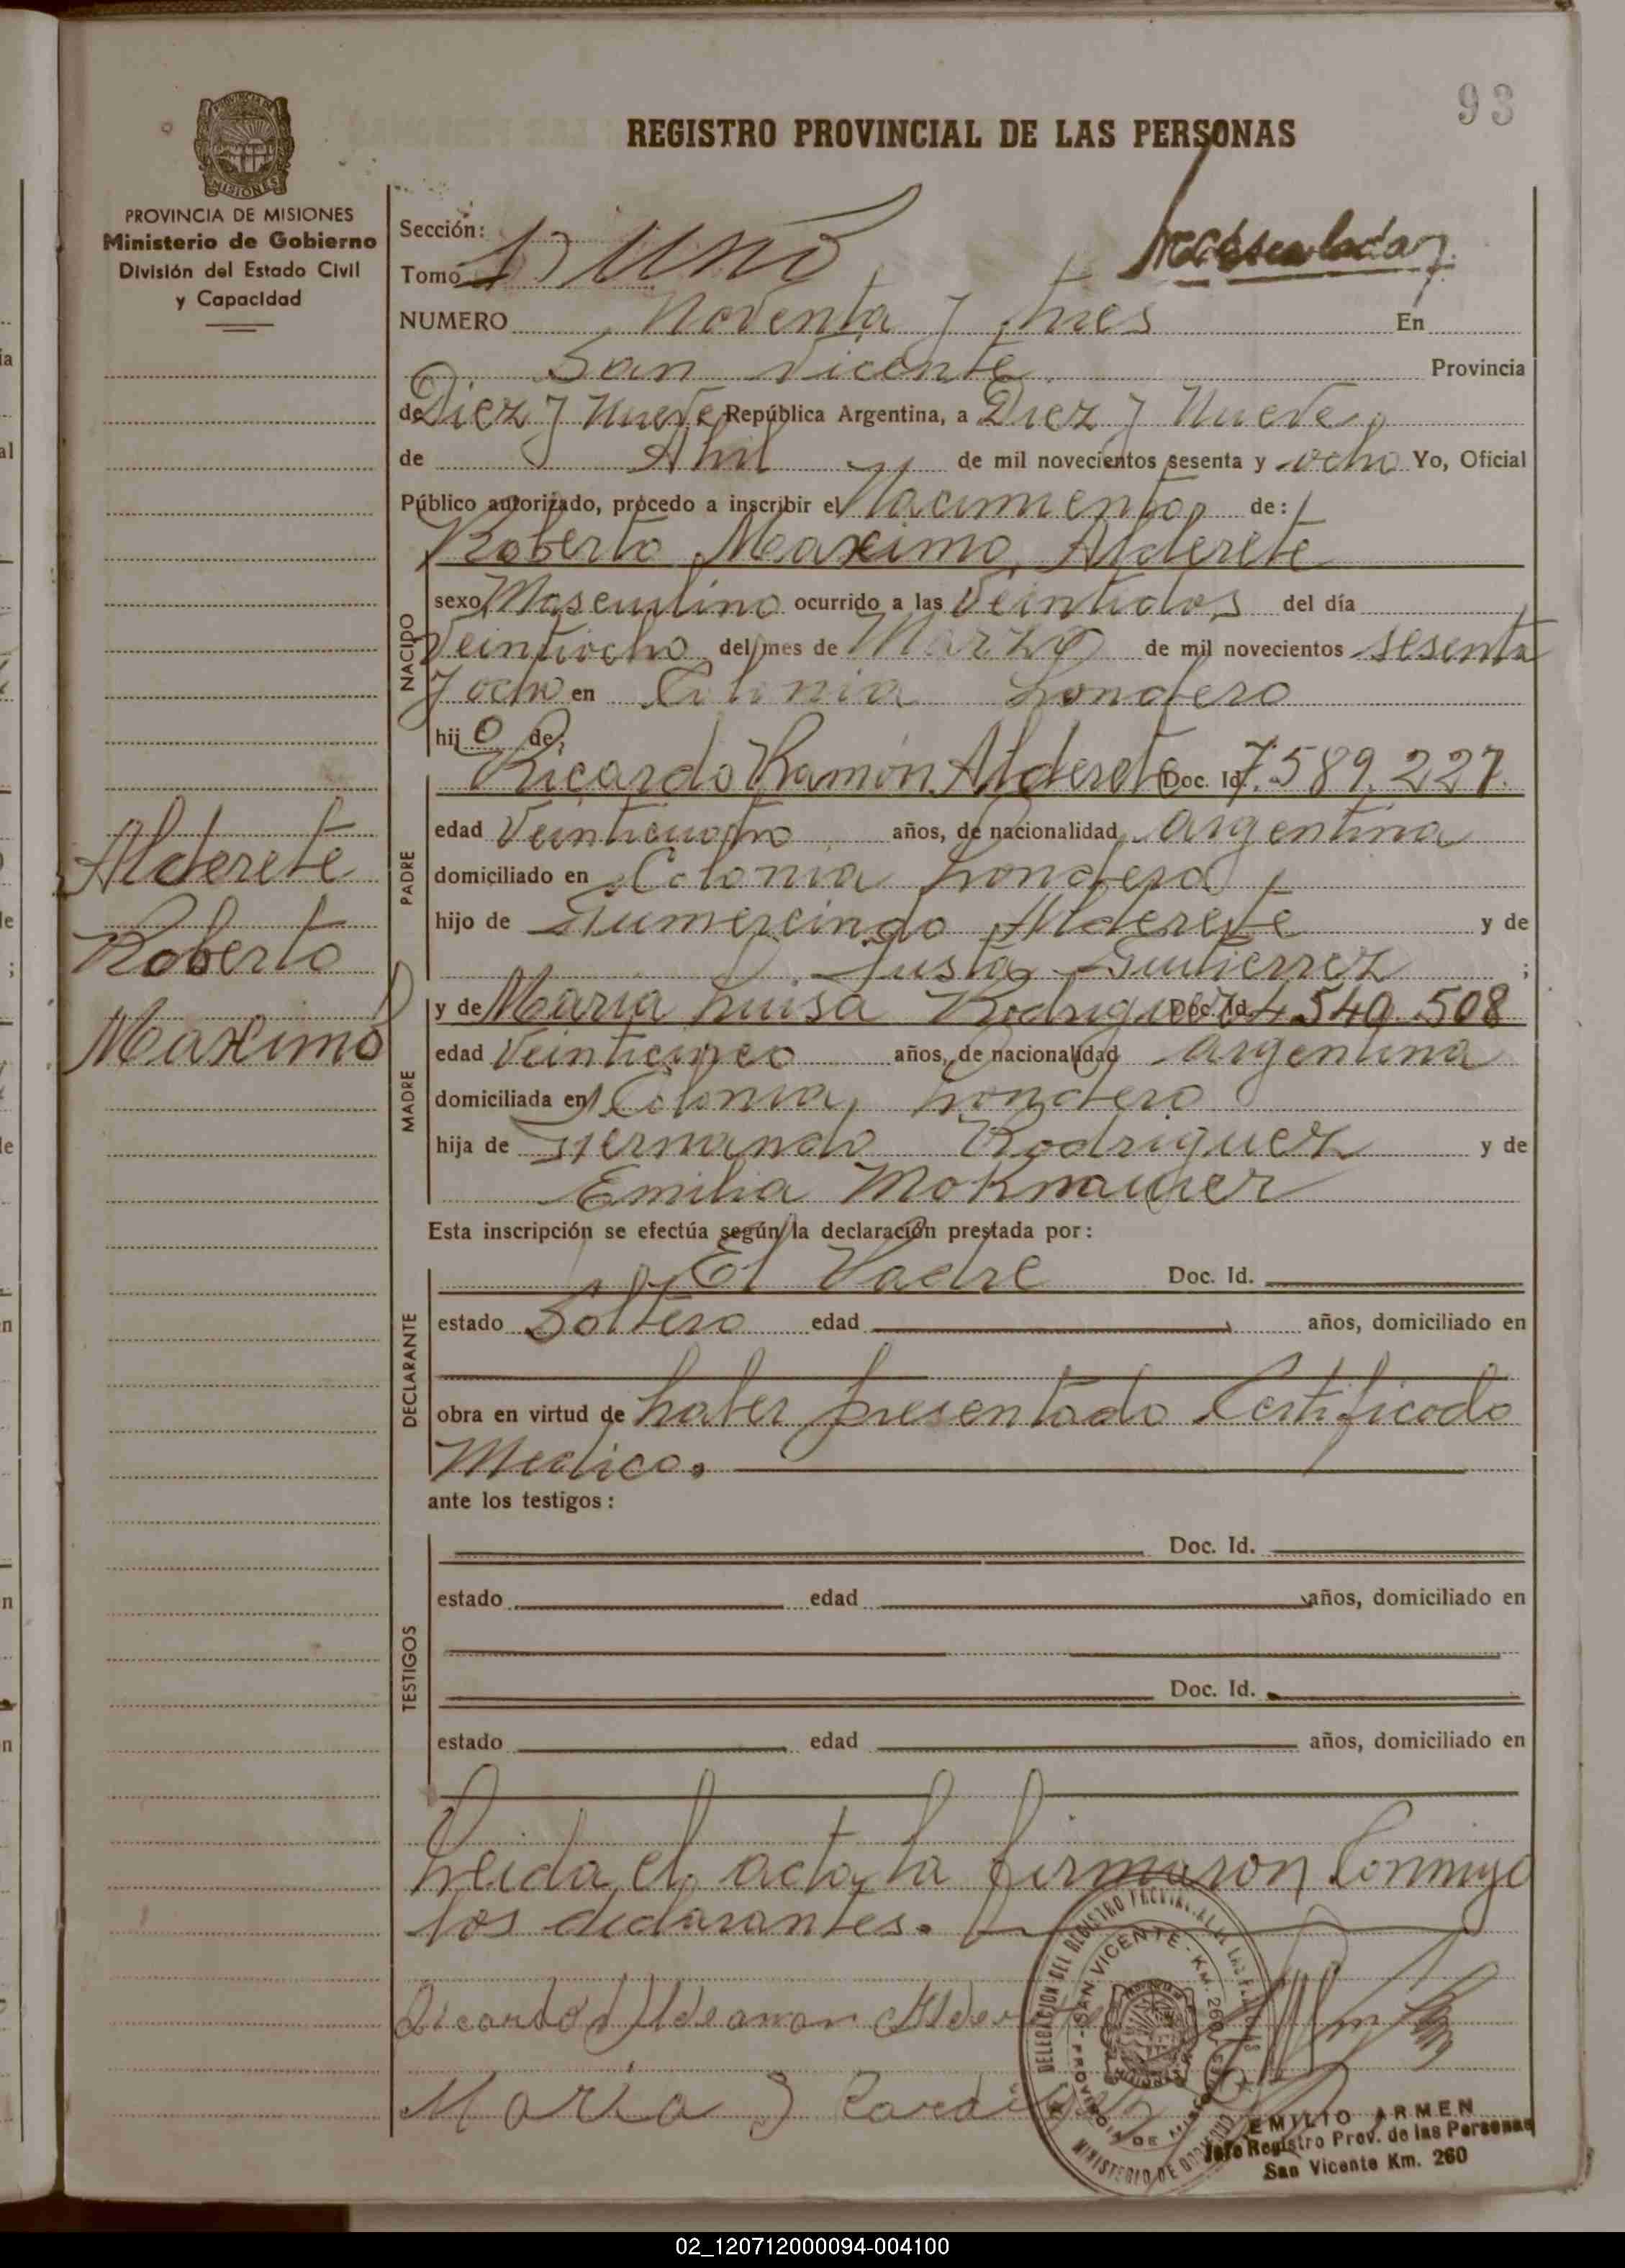 93
REGISTRO PROVINCIAL DE LAS PERSONAS
PROVINCIA DE MISIONES
Ministerio de Gobierno
División del Estado Civil
y Capacidad
Sección:
Tomo 1) UNO
NUMERO Noventa y tres En
San Vicente Provincia
de Diez y Nueve República Argentina, a Diez y Nueve
de Abril de mil novecientos sesenta y ocho Yo, Oficial
Público autorizado, procedo a inscribir el Nacimiento de:
Roberto Maximo Alderete
NACIDO
sexo Masculino ocurrido a las Veintidos del día
Veintiocho del mes de Marzo de mil novecientos sesenta
y ocho en Colonia Londero
hijo de;
PADRE
Ricardo Ramón Alderete Doc. Id. 7.589.227.
edad Veinticuatro años, de nacionalidad argentina
domiciliado en Colonia Londero
hijo de Gumercindo Alderete y de
Justa Gutierrez ;
MADRE
y de Maria Luisa Rodriguez Doc. Id. 4.540.508
edad Veinticinco años, de nacionalidad argentina
domiciliada en Colonia Londero
hija de Hernando Rodriguez y de
Emilia
Alderete
Roberto
Maximo
Esta inscripción se efectúa según la declaración prestada por:
DECLARANTE
El Padre Doc. Id.
estado Soltero edad años, domiciliado en
obra en virtud de haber presentado Certificado
Medico.
ante los testigos:
TESTIGOS
Doc. Id.
estado edad años, domiciliado en
Doc. Id.
estado edad años, domiciliado en
Leida el acta la firmaron Conmigo
los declarantes.
Ricardo Alderete
Maria
DELEGACION DEL REGISTRO PROVINCIAL DE LAS PERSONAS
SAN VICENTE - KM. 260
PROVINCIA DE MISIONES
MINISTERIO DE GOBIERNO
EMILIO ARMEN
Jefe Registro Prov. de las Personas
San Vicente Km. 260
02_120712000094-004100